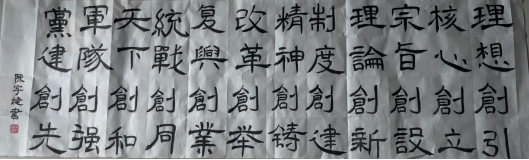 理想創引
核心創立
宗旨創設
理論創新
制度創建
精神創铸
改革創举
复興創業
統戰創同
天下創和
軍隊創强
黨建創先